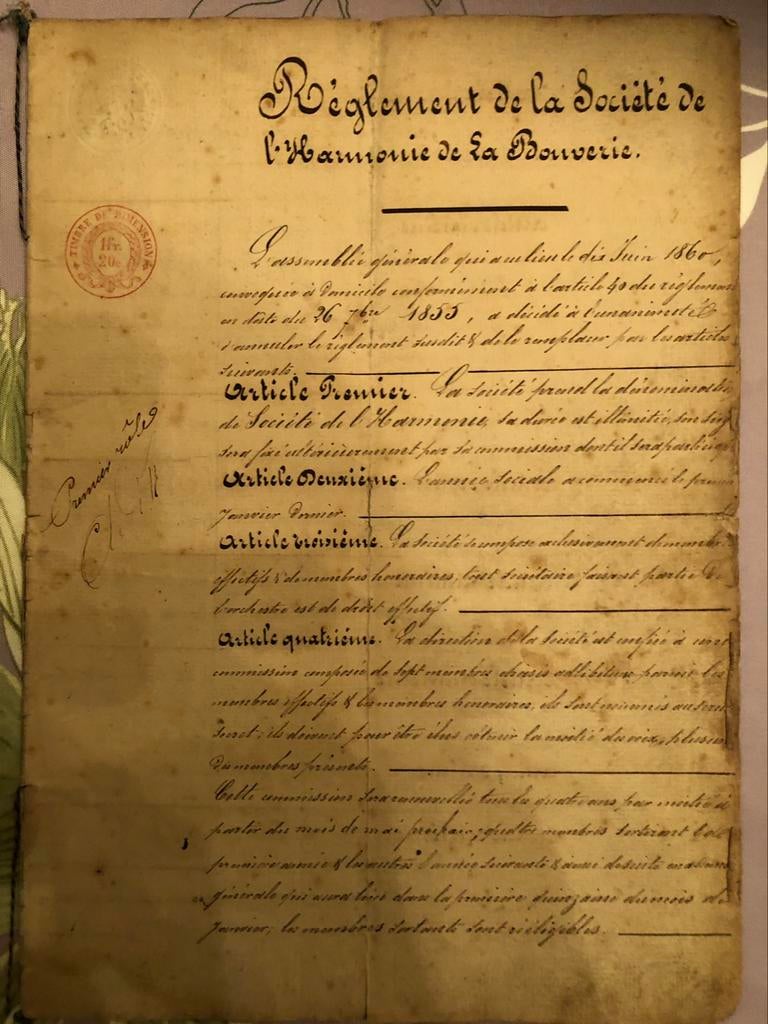 Règlement de la Société de
l'Harmonie de La Bouverie.
TIMBRE DE DIMENSION
1 fr.
20c
L'assemblée générale qui a eu lieu le dix Juin 1860,
convoquée à domicile conformément à l'article 40 du règlement
en date du 26 7bre 1855, a décidé à l'unanimité
d'annuler le règlement susdit & de le remplacer par les articles
suivants.
Article Premier. La société prend la dénomination
de Société de l'Harmonie, sa durée est illimitée, son
sera fixé ultérieurement par sa commission dont il sera
Article Deuxiéme. L'année sociale a commencé le premier
Janvier dernier.
Article troisiéme. La société se compose exclusivement de membres
effectifs & de membres honoraires, tout sociétaire faisant partie de
l'orchestre est de droit effectif.
Article quatriéme. La direction de la société est confiée à une
commission composée de sept membres choisis parmi les
membres effectifs & les membres honoraires, ils sont nommés au scrutin
secret; ils doivent pour être élus obtenir la moitié des voix, plus une
des membres présents.
Cette commission sera renouvellée tous les quatre ans par moitié à
partir du mois de mai prochain; quatre membres sortiront la
première année & les autres l'année suivante & ainsi de suite en assemblée
générale qui aura lieu dans la première quinzaine du mois de
Janvier; les membres sortants sont rééligibles.
Premier rôle